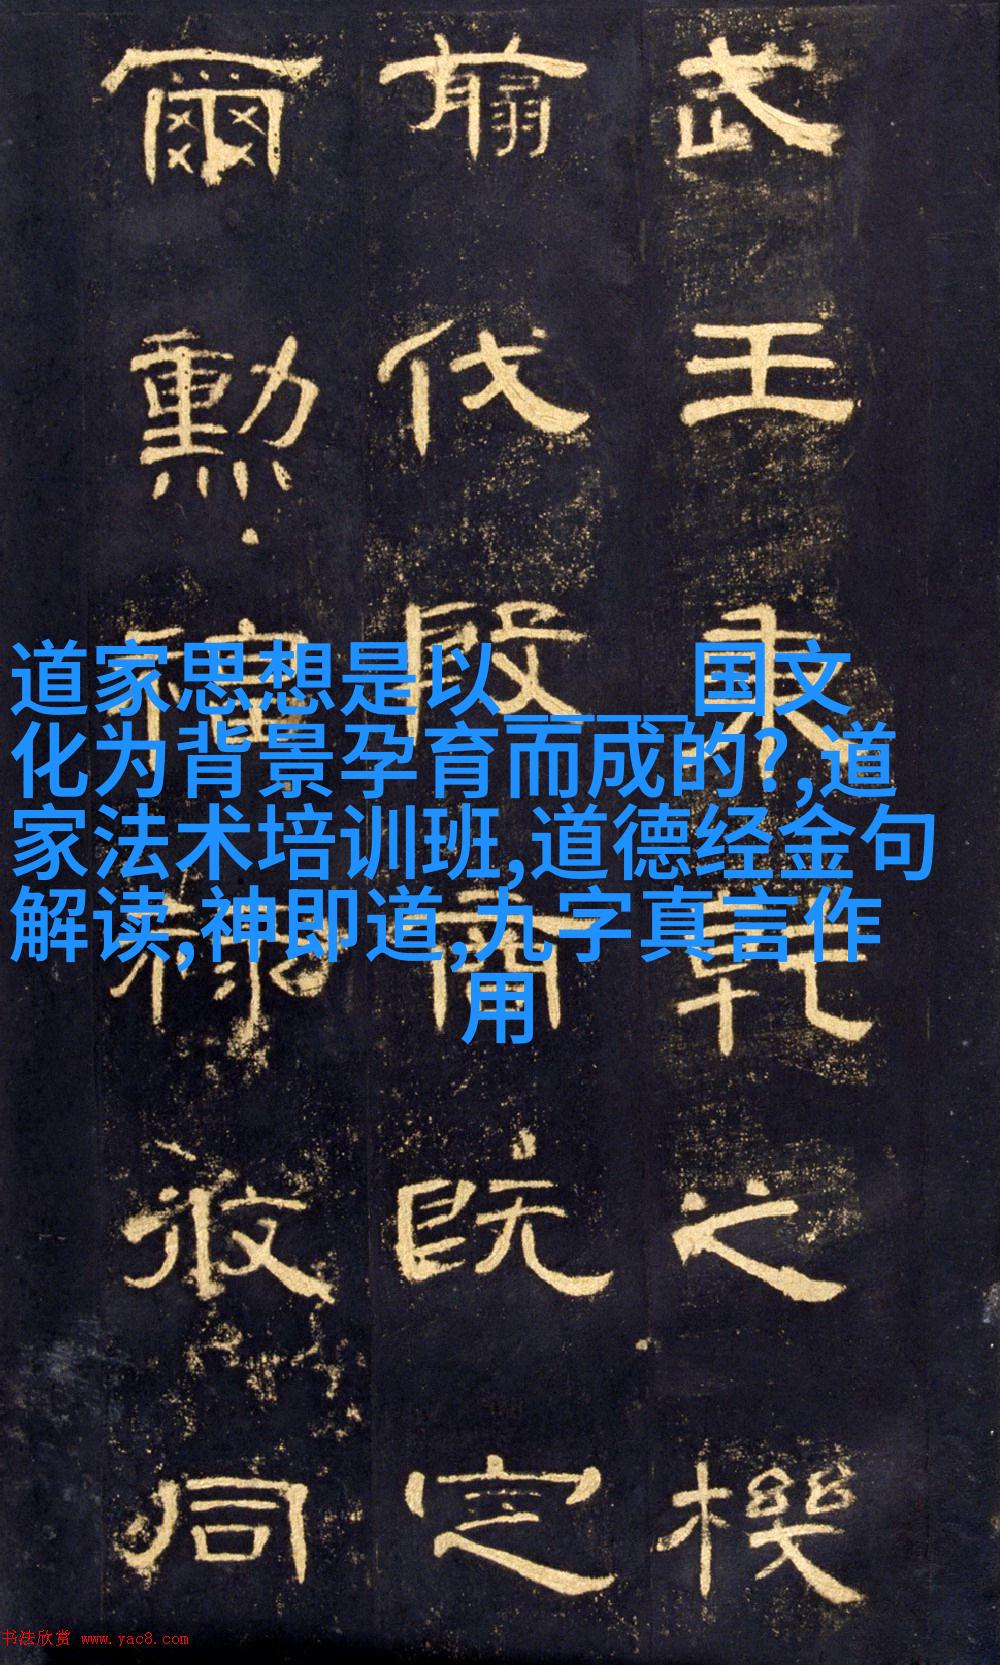 武王秉乾之機
翦伐殷商既定
爾勲福祿攸同
道家思想是以____国文
化为背景孕育而成的?,道
家法术培训班,道德经金句
解读,神即道,九字真言作
用
书法欣赏 www.yac8.com